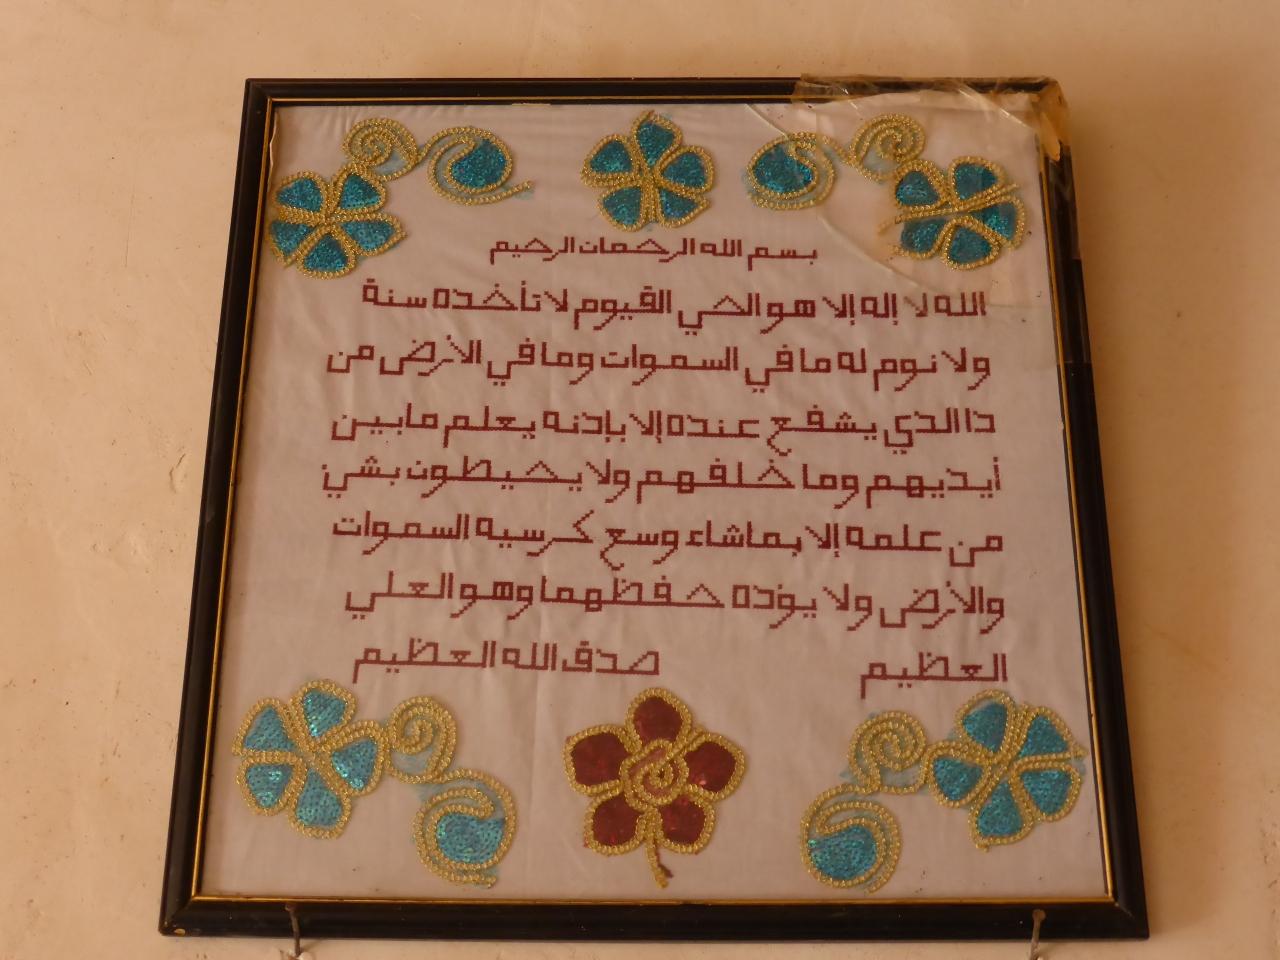 بسم الله الرحمان الرحيم
الله لا إله إلا هو الحي القيوم لا تأخذه سنة
ولا نوم له ما في السموات وما في الأرض من
ذا الذي يشفع عنده إلا بإذنه يعلم ما بين
أيديهم وما خلفهم ولا يحيطون بشي
من علمه إلا بما شاء وسع كرسيه السموات
والأرض ولا يؤذه حفظهما وهو العلي
العظيم صدق الله العظيم